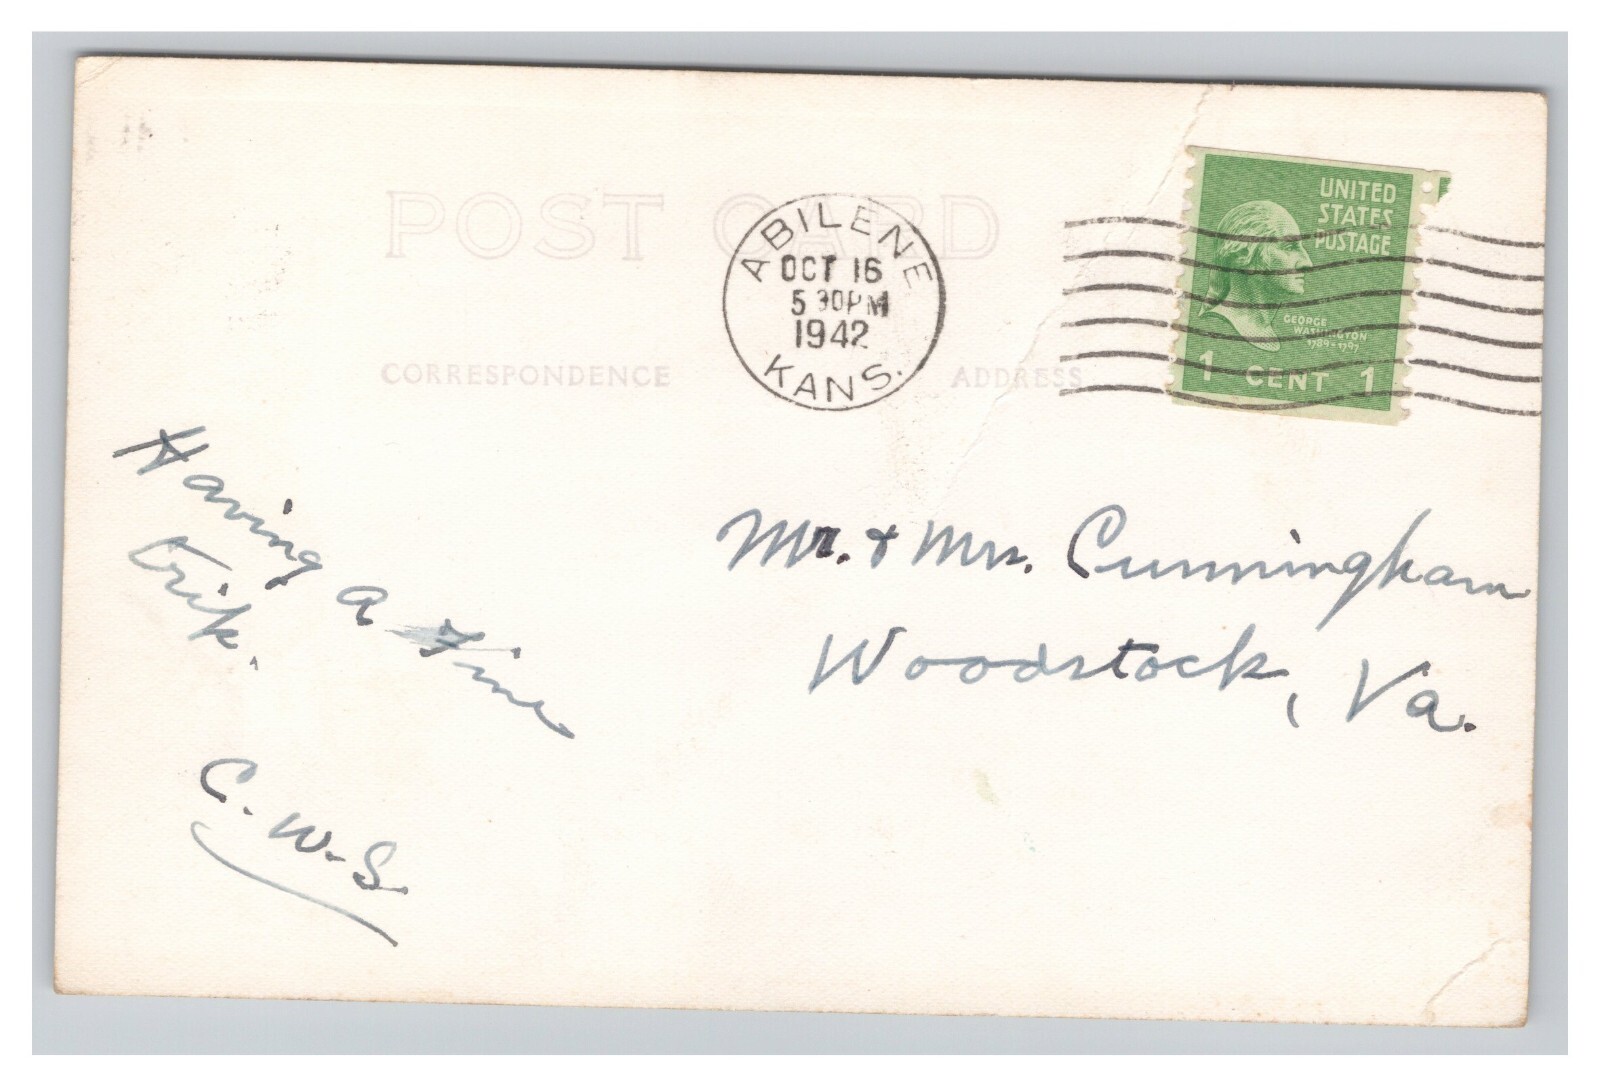 POST CARD
ABILENE
OCT 16
5 30PM
1942
KANS.
UNITED
STATES
POSTAGE
GEORGE
WASHINGTON
1789-1797
1 CENT 1
CORRESPONDENCE
ADDRESS
Having a fine
Trip.
C. W. S.
Mr. & Mrs. Cunningham
Woodstock, Va.